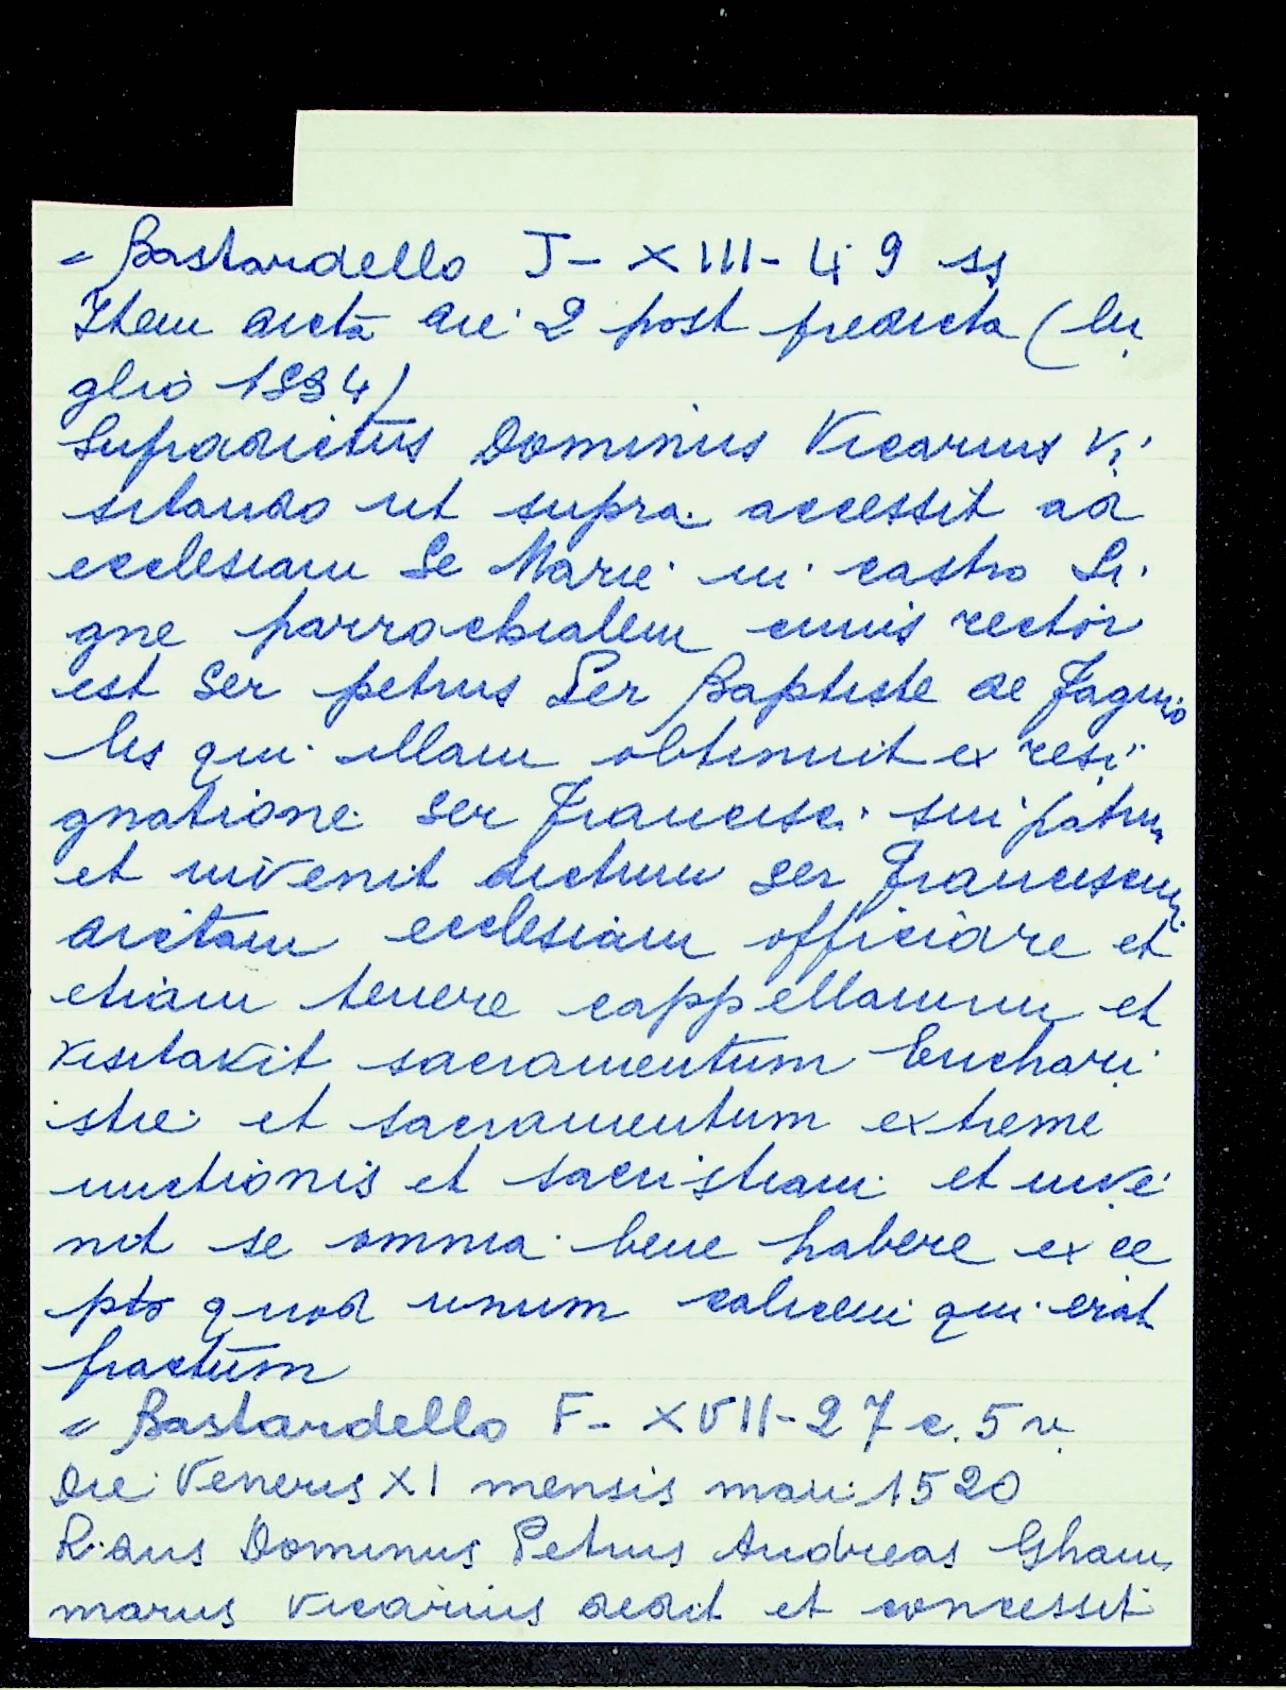 = Bastardello J - XIII - 49 ss
Item dicta die 2 post predicta (lu
glio 1994)
Supradictus Dominus Vicarius vi
sitando ut supra accessit ad
ecclesiam Se Marie in castro Si
gne parrochialem cuius rector
est Ser petrus Ser Baptiste de Fagnio
lis qui illam obtinuit ex resi
gnatione ser Francisci sui patrui
et invenit dictum ser Franciscum
dictam ecclesiam officiare et
etiam tenere cappellanum et
visitavit sacramentum Euchari
stie et sacramentum extreme
unctionis et sacristiam et inve
nit se omnia bene habere exce
pto quod unum calicem qui erat
fractum
= Bastardello F - XVII - 27 c. 5 v.
Die Veneris XI mensis maii 1520
R.dus Dominus Petrus Andreas Gham
marus vicarius dedit et concessit